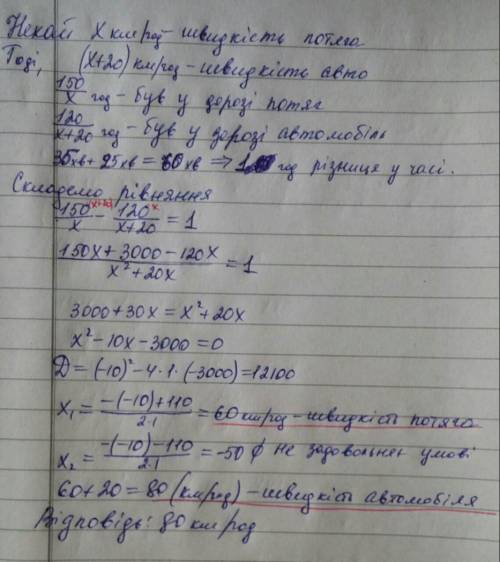 Нехай x км/год - швидкість потяга
Тоді, (x+20) км/год - швидкість авто
150/x год - був у дорозі потяг
120/x+20 год - був у дорозі автомобіль
35хв + 25хв = 60 хв => 1 год різниця у часі.
Складемо рівняння
150/x (x+20) - 120/x+20 x = 1
150x + 3000 - 120x / x² + 20x = 1
3000 + 30x = x² + 20x
x² - 10x - 3000 = 0
D = (-10)² - 4·1·(-3000) = 12100
x₁ = -(-10)+110 / 2·1 = 60 км/год - швидкість потяга
x₂ = -(-10)-110 / 2·1 = -50 ∮ не задовольняє умові
60+20 = 80 (км/год) - швидкість автомобіля
Відповідь: 80 км/год